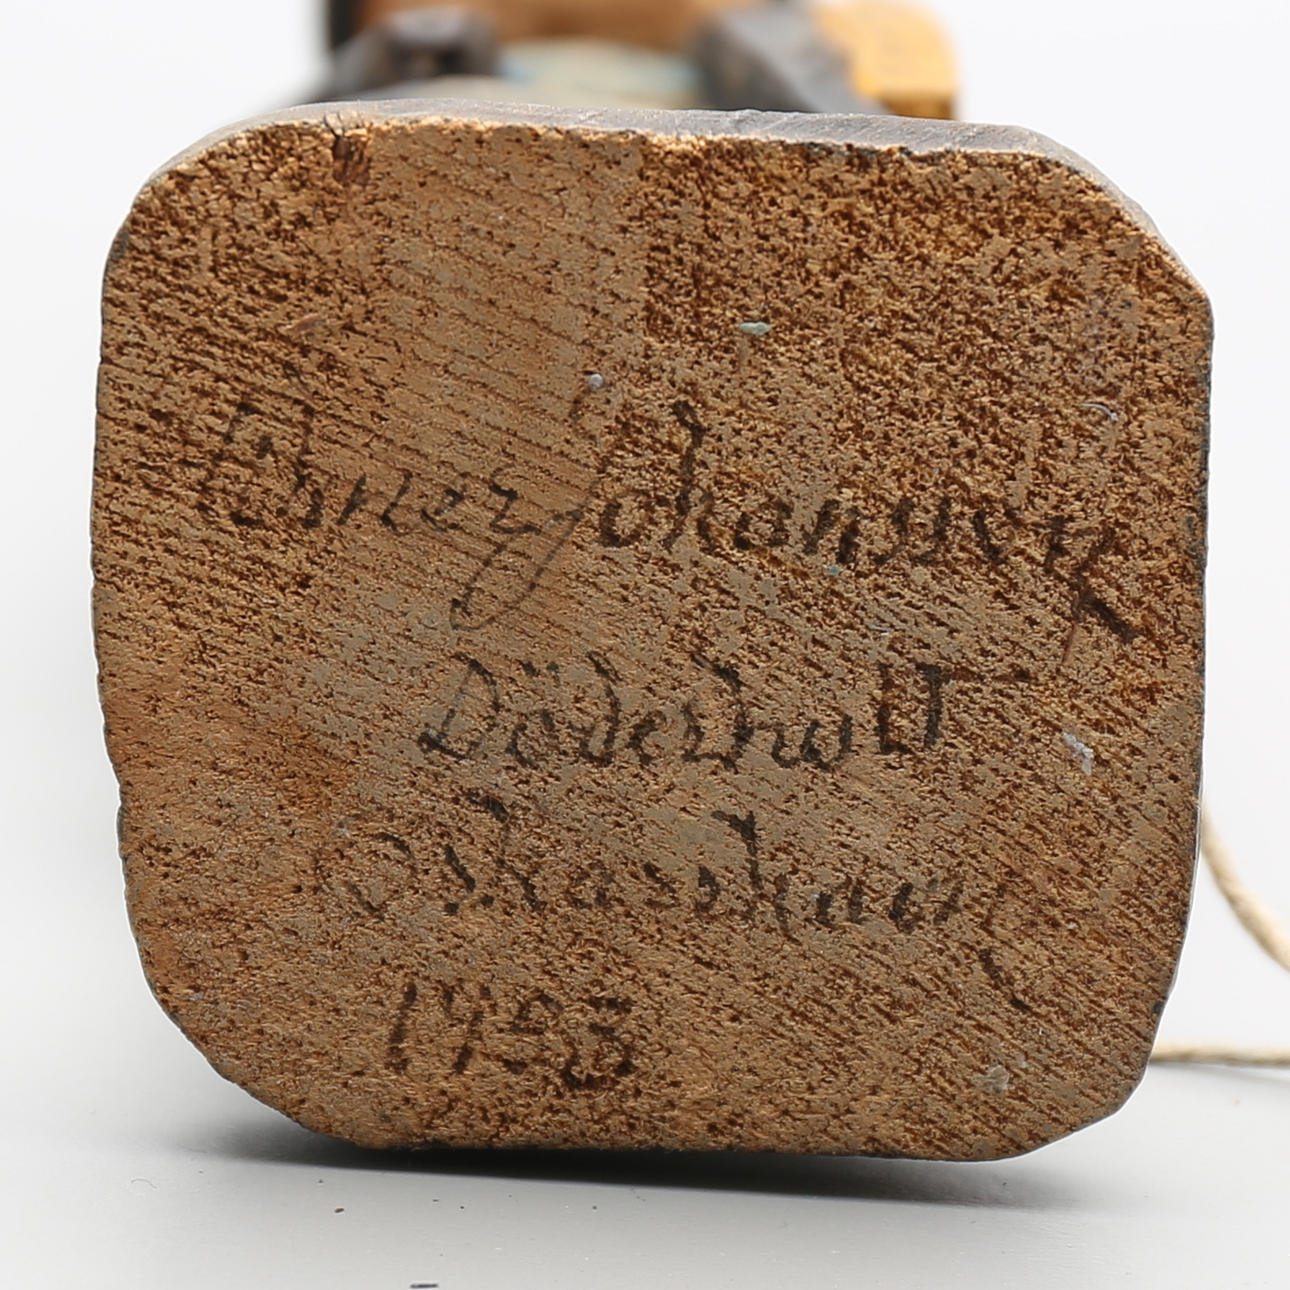 Ebner Johansson
Döderhult
Oskarshamn
1923